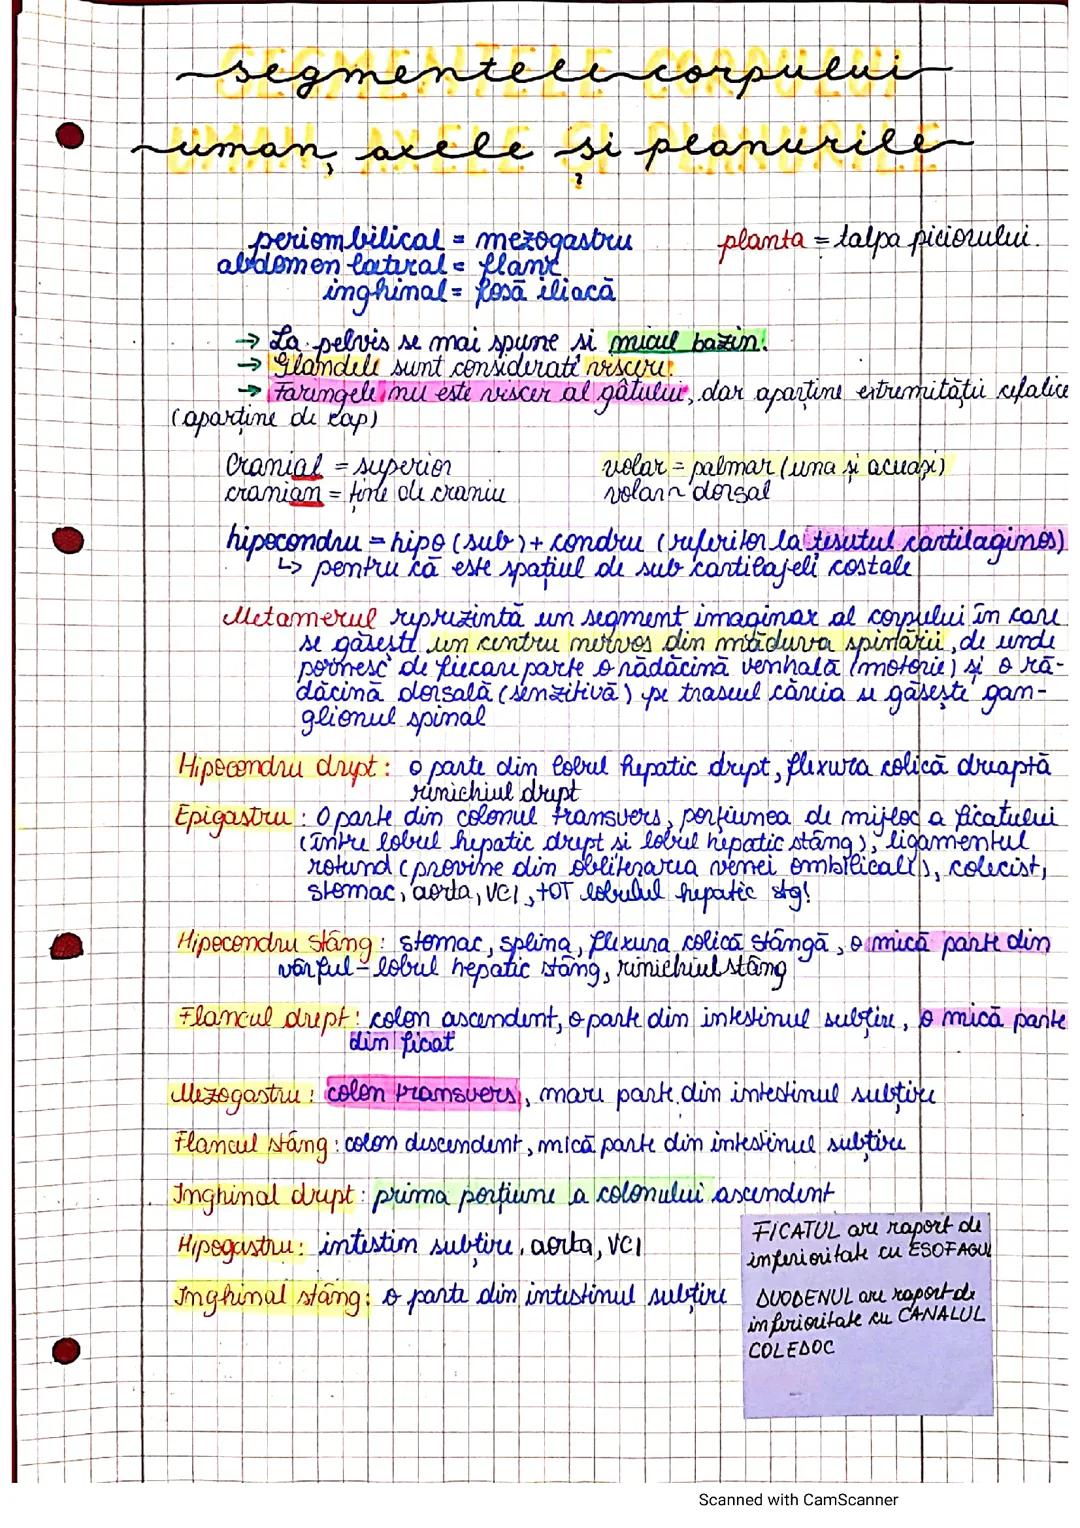 segmentele corpului
uman, axele și planurile
periombilical = mezogastru
planta = talpa piciorului.
abdomen lateral = flanc
inghinal = fosă iliacă
→ La pelvis se mai spune si micul bazin.
→ Glandele sunt considerati viscere.
→ Faringele nu este viscer al gâtului, dar aparține extremității cefalice
(aparține de cap)
Cranial = superior
volar = palmar (una și aceași)
cranian = ține de craniu
volar ~ dorsal
hipocondru = hipo (sub) + condru (referitor la țesutul cartilaginos)
↳ pentru că este spațiul de sub cartilajeli costale
Metamerul reprezintă un segment imaginar al corpului în care
se găsește un centru nervos din măduva spinării, de unde
pornesc de fiecare parte o rădăcină ventrală (motorie) și o ră-
dăcină dorsală (senzitivă) pe traseul căreia se găsește gan-
glionul spinal
Hipocondru drept: o parte din lobul hepatic drept, flexura colică dreaptă
rinichiul drept
Epigastru: O parte din colonul transvers, porțiunea de mijloc a ficatului
(între lobul hepatic drept si lobul hepatic stâng), ligamentul
rotund (provine din obliterarea venei ombilicale), colecist,
stomac, aorta, VCI, TOT lobulul hepatic stg!
Hipocondru stâng: stomac, splina, flexura colică stângă, o mică parte din
vârful - lobul hepatic stâng, rinichiul stâng
Flancul drept: colon ascendent, o parte din intestinul subțire, o mică parte
din ficat
Mezogastru: colon transvers, mare parte din intestinul subțire
Flancul stâng: colon descendent, mică parte din intestinul subțire
Inghinal drept: prima porțiune a colonului ascendent
Hipogastru: intestin subțire, aorta, VCI
Inghinal stâng: o parte din intestinul subțire
FICATUL are raport de
inferioritate cu ESOFAGU
DUODENUL are raport de
inferioritate cu CANALUL
COLEDOC
Scanned with CamScanner